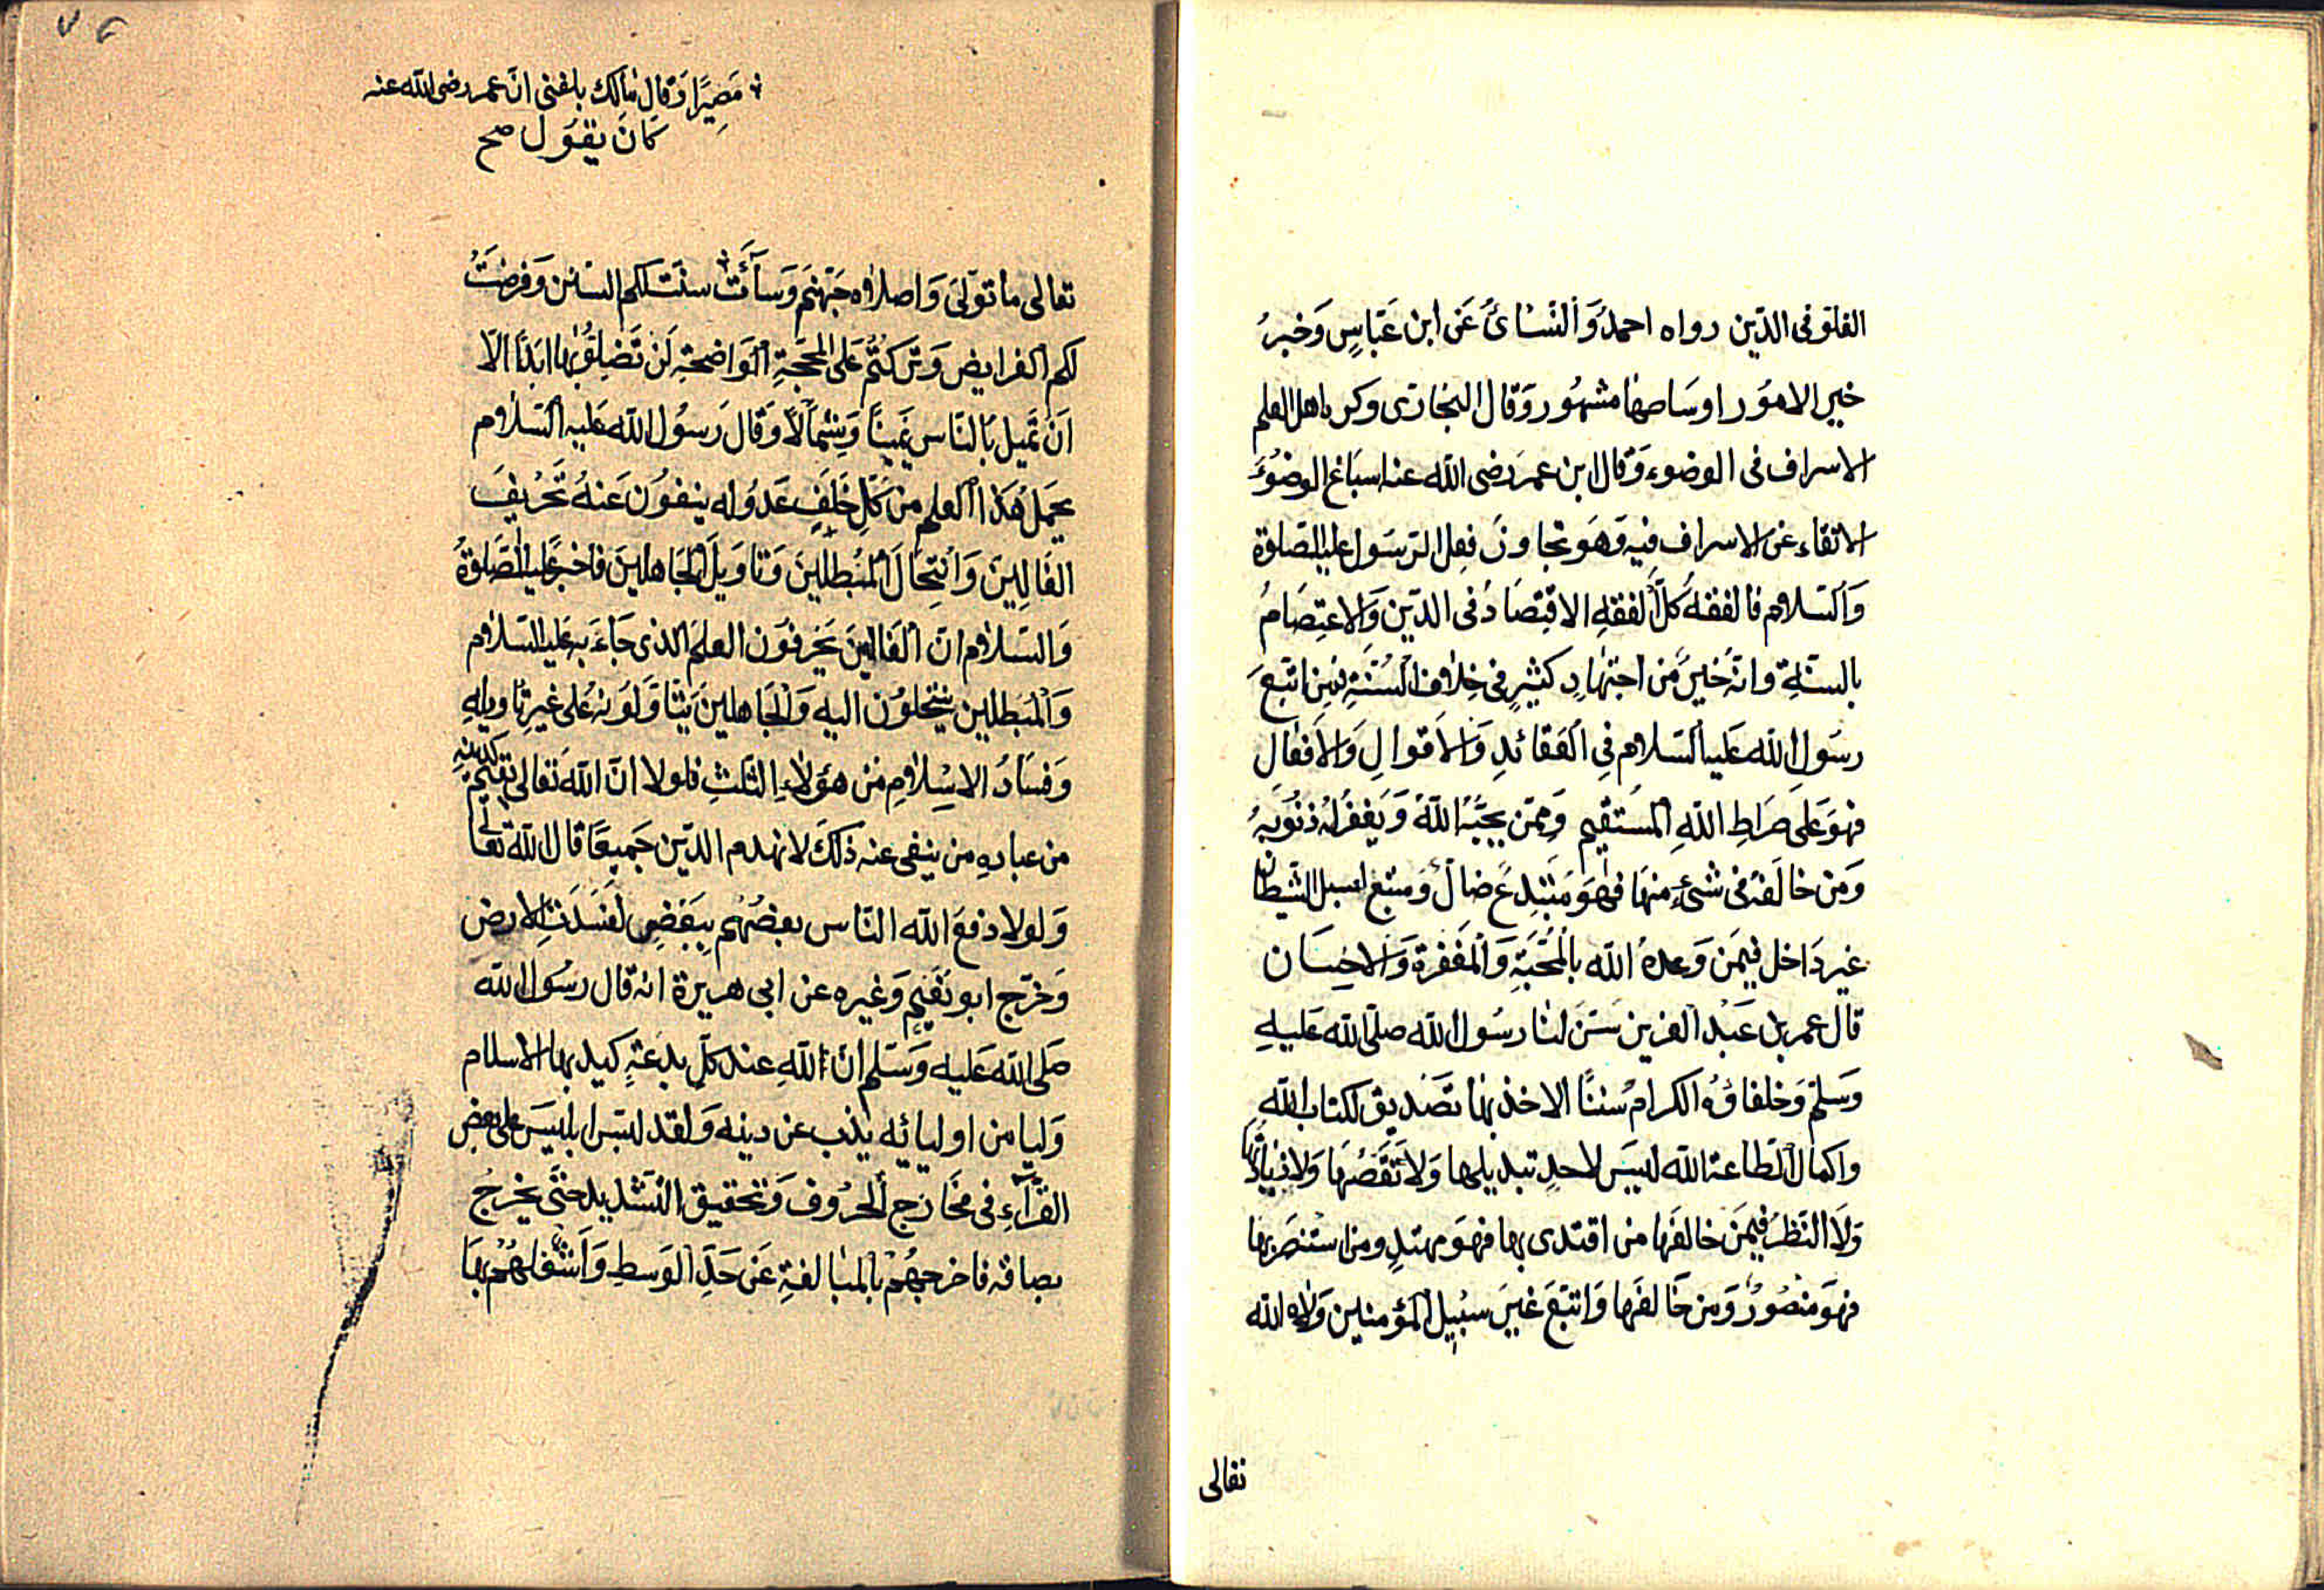 الغلو فى الدّين رواه احمدُ وَالنّسَائُ عَن ابن عَبّاسٍ وَخبرُ
خير الامُور اوسَاطها مشهُور وَقال البخارى وكره اهل العلم
الاسراف فى الوضوء وَقال ابن عمر رَضى اللّه عنه اسبَاغ الوضوُء
الاتقاء عن الاسراف فيه وَهو تجاوز فعل الرّسَول عليه الصّلوة
وَالسّلام فالفقهُ كلّ الفقهِ الاقتِصَادُ فى الدّين وَالاعتِصَامُ
بالسنّة وانهُ خيرٌ من اجتهادٍ كثيرٍ فى خِلاف السُّنّةِ فمن اتبعَ
رسَول اللّه عَليه السّلام فِى العَقائدِ وَالاَقوالِ وَالاَفعالِ
فهوَ عَلى صرَاطِ اللّهِ المستقيم وَممّن يحبّهُ اللّهُ وَيَغفرُ لهُ ذنُوبهُ
وَمن خالَفهُ فى شئٍ منهَا فهوَ مَبتدِعٌ ضالٌ وَمتبع لسبل الشّيطان
غير دَاخل فيمَن وَعدهُ اللّه بالمُحَبّةِ وَالمغفرة وَالاحِسَان
قال عمر بن عَبد العزيز سَنَ لنا رسُول اللّه صلّى اللّه عَليهِ
وَسَلّم وَخلفاؤُه الكرامُ سُننًا الاخذ بهَا تَصَديق لكتاب اللّهِ
واكمال لطاعة اللّه ليسَ لاحدٍ تبديلها وَلا نَقصُهَا وَلا زيادتها
وَلاَ النّظرُ فيمَن خالفَها من اقتدى بها فهوَ مهتدٍ ومن استنصَر بها
فهوَ منصُورٌ وَمن خَالفَها وَاتبَعَ غيرَ سبيل المؤمنين وَلاه اللّه
تعالى
مَصِيرًا وَقال مالك بلغنى انّ عمر رضى اللّه عنه
كانَ يقوُل صح
تعالى ما توَلىّ وَاصلاه جَهنّم وَسَآءَتْ سنّت لكم السّنن وَفرضَتُ
لكم الفرايض وَتركتُم عَلى المحَجّةِ الوَاضحةِ لَن تَضِلوُّا بها ابدًا الاّ
اَن تميل بالنّاس يَمينًا وَشِمالاً وَقال رَسوُل اللّه عَليه السّلام
يحملُ هَذا العلم من كلّ خَلَفٍ عَدوُله ينفوُن عَنهُ تَحريفَ
الغَالِينَ وَانتِحَالَ المُبطلينَ وَتاويلَ الجَاهلينَ فاخبرَ عليه الصَّلوةُ
وَالسّلام انّ الغَالينَ يحَرفوَن العلم الذى جَاءَ به عَليه السّلام
وَالمبَطلين ينتحلوُن اليه وَالجَاهلينَ يَتأوَلوَنهُ عَلى غيرِ تاويلهِ
وَفسَادُ الاسِلامِ من هؤلاءِ الثّلثِ فلولا انّ اللّهَ تَعالى يقيم لدينهِ
من عبادهِ من ينفى عنه ذلكَ لانهدم الدّين جَميعًا قال اللّه تعالى
وَلولا دفعَ اللّه النّاس بعضُهُم ببَعضٍ لفسَدَت الارض
وَخرّج ابو نعَيمٍ وَغيره عن ابى هريرة انه قال رسُول اللّه
صَلى اللّهَ عَليه وَسَلم انّ للّهِ عند كلّ بدعَةٍ كيد بها الاسلام
وَليا من اوليائه يذب عن دينه وَلقد لبّس ابلَيسَ على بعض
القرّآءِ فى مخَارَج الحرُوف وَتحقيق التّشديد حتّى يخرجُ
بصاقه فاخرجهُم بالمبالغةِ عَن حَدّ الوَسطِ وَاَشغلهُم بهَا